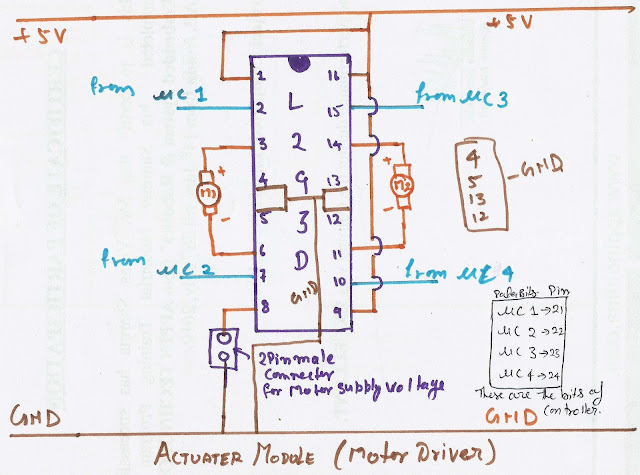 +5V
+5V
from μC 1
from μC 3
1
16
2
L
15
3
2
14
+
M1
-
4
9
13
+
M2
-
5
3
12
6
D
11
from μC 2
7
10
from μC 4
8
9
GND
4
5
13
12
GND
2Pin male
Connecter
for Motor Supply Voltage
Pin
μC 1→21
μC 2→22
μC 3→23
μC 4→24
These are the bits of
Controller.
GND
GND
ACTUATER MODULE (Motor Driver)